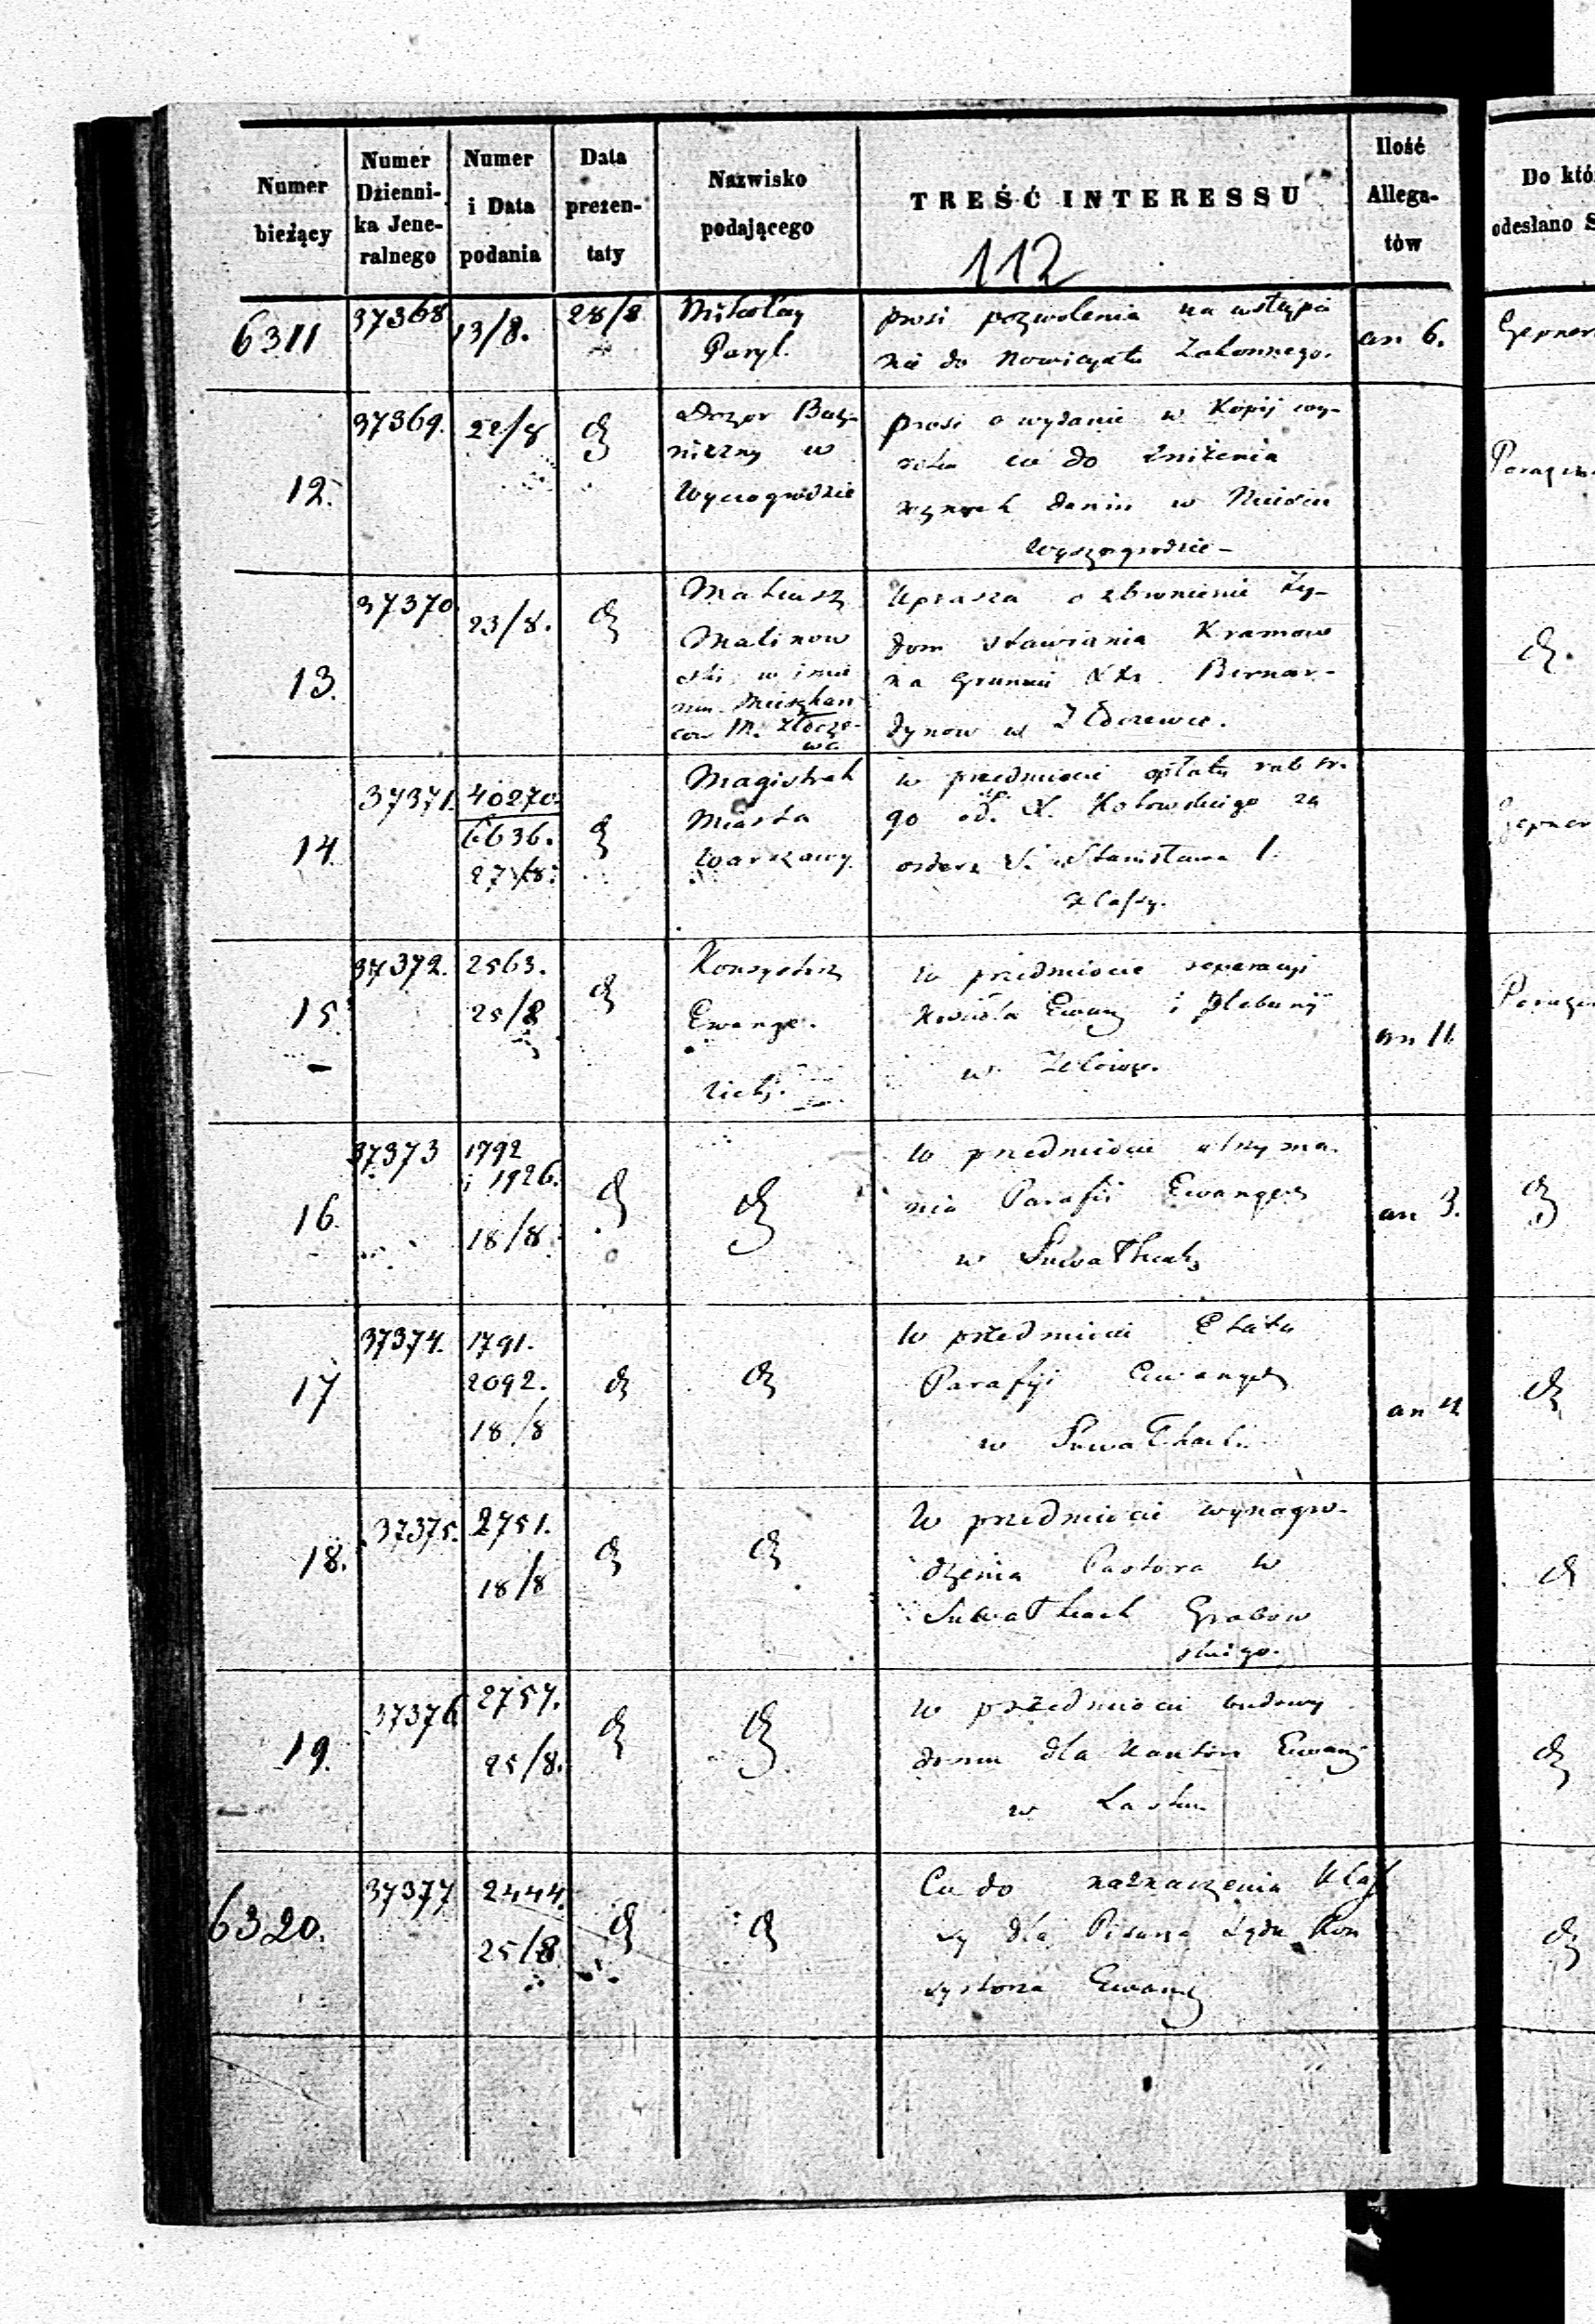 Numer bieżący
Numer Dzienni-ka Jene-ralnego
Numer i Data podania
Data prezen-taty
Nazwisko podającego
TREŚĆ INTERESSU
112
Ilość Allega-tów
Do któ
odesłano S
6311 37368 13/8. 28/8 Mikołay
Paryl.
prosi pozwolenia na wstąpie
nie do Nowicyatu Zakonnego.
an 6.
Gepner
12. 37369. 22/8 Dozor Boż-
niczny w
Wyszogrodzie
prosi o wydanie w Kopij wy-
co do zniżenia
danin w Mieście
Wyszogrodzie -
13. 37370 23/8. Mateusz
Malinow
ski w imie
niu Mieszkań
cow M. Złocze-
wa
Uprasza o zbronienie Ży-
dom stawiania Kramow
na gruncie XX. Bernar-
dynow w Złoczewie.
14. 37371. 40270.
6636.
27/8. Magistrat
Miasta
Warszawy
w przedmiocie opłaty rub sr.
90 od X. Kotowskiego za
order S. Stanisława 1.
klassy.
Gepner
15. 37372. 2563.
25/8 Konsystrz
Ewange.
licki.
w przedmiocie reperacyi
Kościoła Ewang i plebanij
w Zelowie.
an 11
16. 37373 1792
i 1926.
18/8
w przedmiocie utrzyma.
nia Parafii Ewangel
w Suwałkach
an 3.
17 37374. 1791.
2092.
18/8
w przedmiocie Etatu
Parafyi Ewangel
w Suwałkach
an 4
18. 37375. 2751.
18/8
W przedmiocie wynagro-
dzenia Pastora w
Suwałkach Grabow
skiego.
19. 37376 2757.
25/8.
w przedmiocie budowy
domu dla Kantora Ewang
w Łasku
6320. 37377 2444.
25/8
Co do naznaczenia Klas
sy dla Pisarza Sądu Kon
systorza Ewang